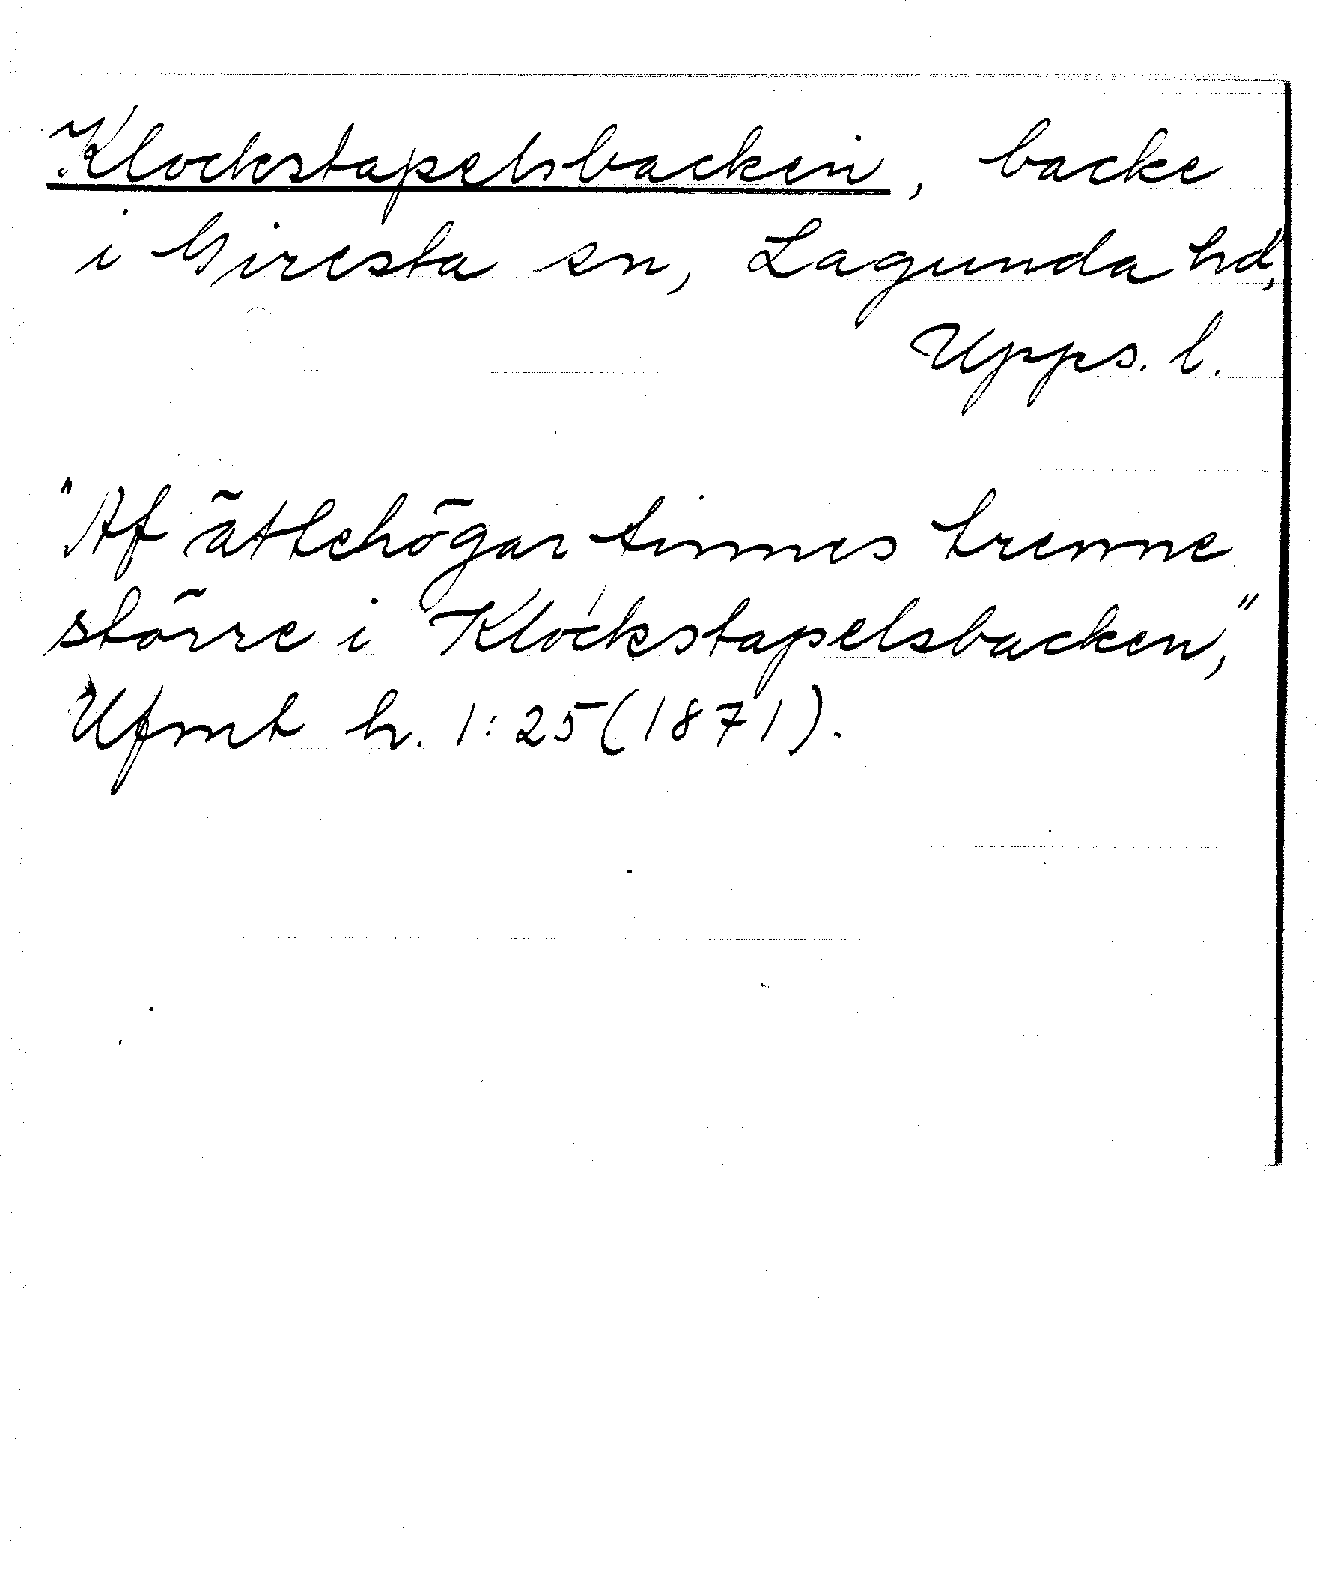 Klockstapelsbacken, backe
i Giresta sn, Lagunda hd,
Upps. l.
"Af ättehögar finnes trenne
större i Klockstapelsbacken,"
Ufmt h. 1:25 (1871).